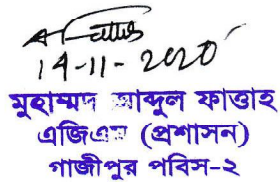 14-11-2020
মুহাম্মদ আব্দুল ফাত্তাহ
এজিএম (প্রশাসন)
গাজীপুর পবিস-২